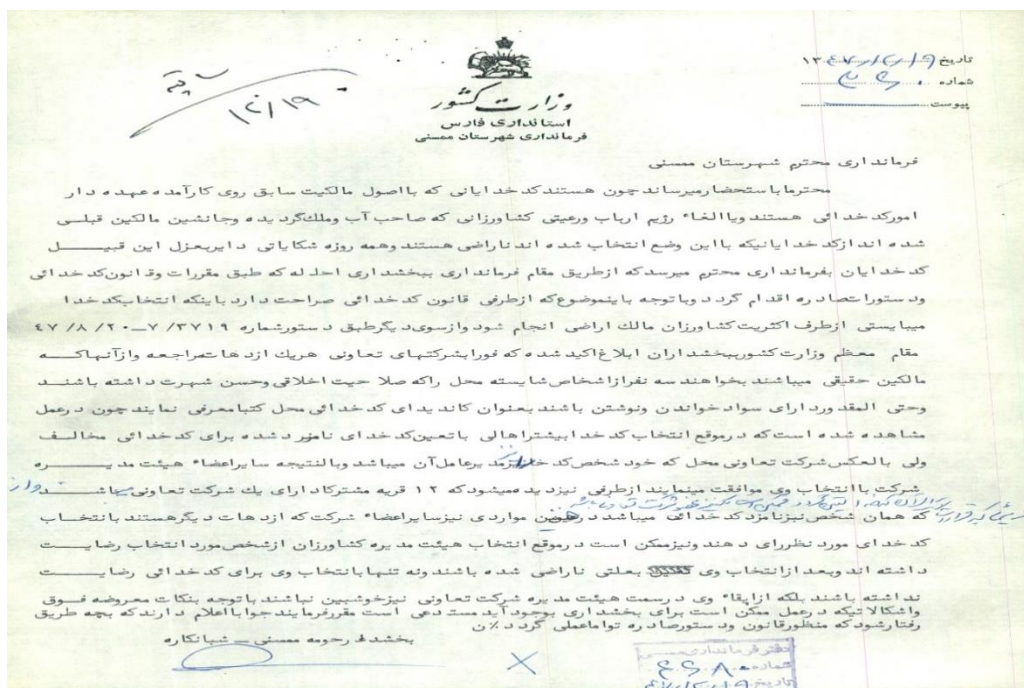 تاریخ ۱۳۴۷/۱۲/۱۹
شماره
پیوست
۱۲/۱۹
وزارت کشور
استانداری فارس
فرمانداری شهرستان ممسنی
فرمانداری محترم شهرستان ممسنی
محترما باستحضار میرساند چون هستند کدخدایانی که بااصول مالکیت سابق روی کارآمده عهده دار
امورکدخدائی هستند وباالغاء رژیم ارباب ورعیتی کشاورزانی که صاحب آب وملک گردیده وجانشین مالکین قبلی
شده اند ازکدخدایانیکه بااین وضع انتخاب شده اند ناراضی هستند وهمه روزه شکایاتی دایربعزل این قبیل
کدخدایان بفرمانداری محترم میرسد که ازطریق مقام فرمانداری ببخشداری احاله که طبق مقررات وقانون کدخدائی
ودستورات صادره اقدام گردد وباتوجه باینموضوع که ازطرفی قانون کدخدائی صراحت دارد باینکه انتخاب کدخدا
میبایستی ازطرف اکثریت کشاورزان مالک اراضی انجام شود وازسوی دیگر طبق دستورشماره ۷/۳۷۱۹ – ۴۷/۸/۲۰
مقام معظم وزارت کشور ببخشداران ابلاغ اکید شده که فورا بشرکتهای تعاونی هریک ازدهات مراجعه وازآنها که
مالکین حقیقی میباشند بخواهند سه نفرازاشخاص شایسته محل راکه صلاحیت اخلاقی وحسن شهرت داشته باشند
وحتی المقدور دارای سواد خواندن ونوشتن باشند بعنوان کاندیدای کدخدائی محل کتبا معرفی نمایند چون درعمل
مشاهده شده است که درموقع انتخاب کدخدا بیشتراهالی باتعین کدخدای نامزد شده برای کدخدائی مخالف
ولی بالعکس شرکت تعاونی محل که خود شخص کدخدا نیز مدیرعامل آن میباشد وبالنتیجه سایراعضاء هیئت مدیره
شرکت باانتخاب وی موافقت مینمایند ازطرفی نیزدیده میشود که ۱۲ قریه مشترکا دارای یک شرکت تعاونی میباشند
که همان شخص نیزنامزد کدخدائی میباشد در مواردی نیزسایراعضاء شرکت که ازدهات دیگرهستند بانتخاب
کدخدای مورد نظررای دهند ونیزممکن است درموقع انتخاب هیئت مدیره کشاورزان ازشخص مورد انتخاب رضایت
داشته اند وبعد ازانتخاب وی بعلتی ناراضی شده باشند ونه تنها بانتخاب وی برای کدخدائی رضایت
نداشته باشند بلکه ازابقاء وی درسمت هیئت مدیره شرکت تعاونی نیزخوشبین نباشند باتوجه بنکات معروضه فوق
واشکالاتیکه درعمل ممکن است برای بخشداری بوجود آید مستدعی است مقررفرمایند جوابا اعلام دارند که بچه طریق
رفتارشود که منظورقانون ودستورصادره تواما عملی گردد
بخشدار حومه ممسنی – شبانکاره
دفتر فرمانداری ممسنی
شماره
تاریخ ۴۷/۱۲/۱۹